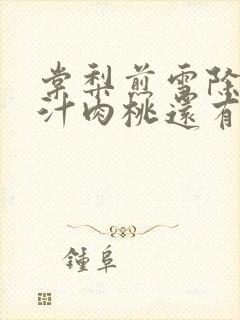 棠梨煎雪除
汁肉桃還有
鍾阜